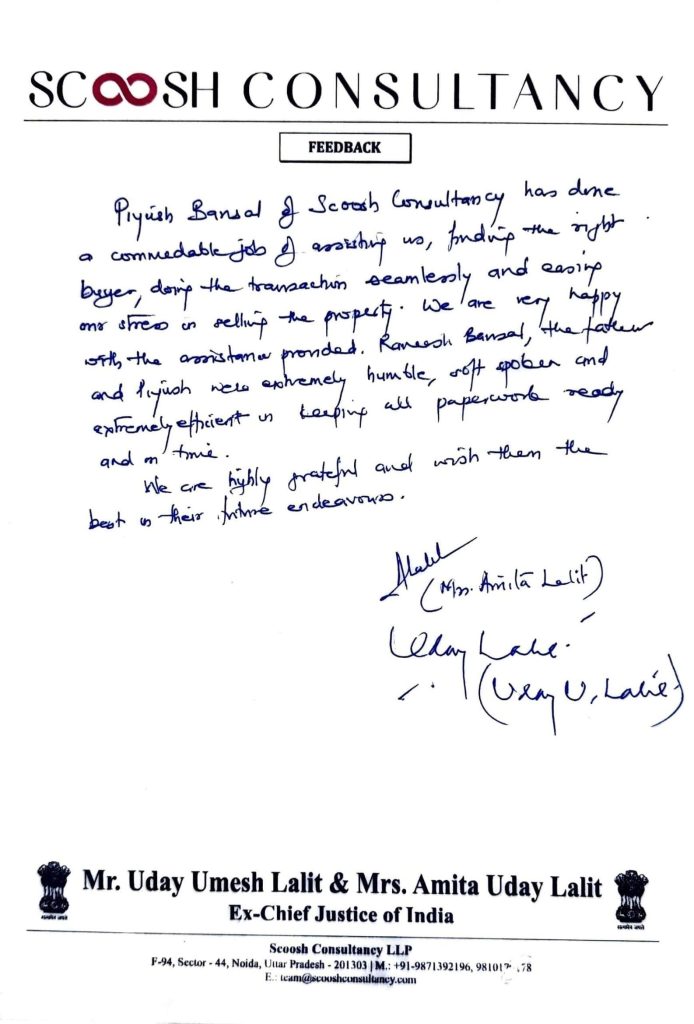 SCOOSH CONSULTANCY
FEEDBACK
Piyush Bansal of Scoosh Consultancy has done
a commedable job of assisting us, finding the right
buyer, doing the transaction seamlessly and easing
our stress in selling the property. We are very happy
with the assistance provided. Raneesh Bansal, the father
and Piyush were extremely humble, soft spoken and
extremely efficient in keeping all paperwork ready
and on time.
We are highly grateful and wish them the
best in their future endeavours.
(Mrs. Amita Lalit)
Uday Lalit
(Uday U. Lalit)
Mr. Uday Umesh Lalit & Mrs. Amita Uday Lalit
Ex-Chief Justice of India
Scoosh Consultancy LLP
F-94, Sector - 44, Noida, Uttar Pradesh - 201303 | M.: +91-9871392196,
E.: team@scooshconsultancy.com